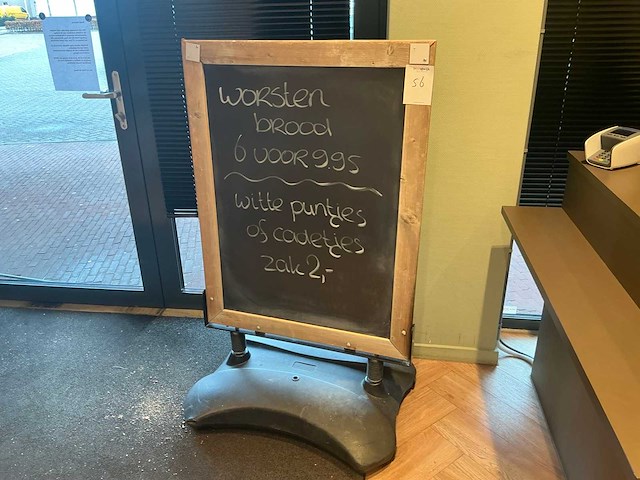 worsten
brood
6 voor 9.95
witte puntjes
of cadetjes
zak 2,-
56